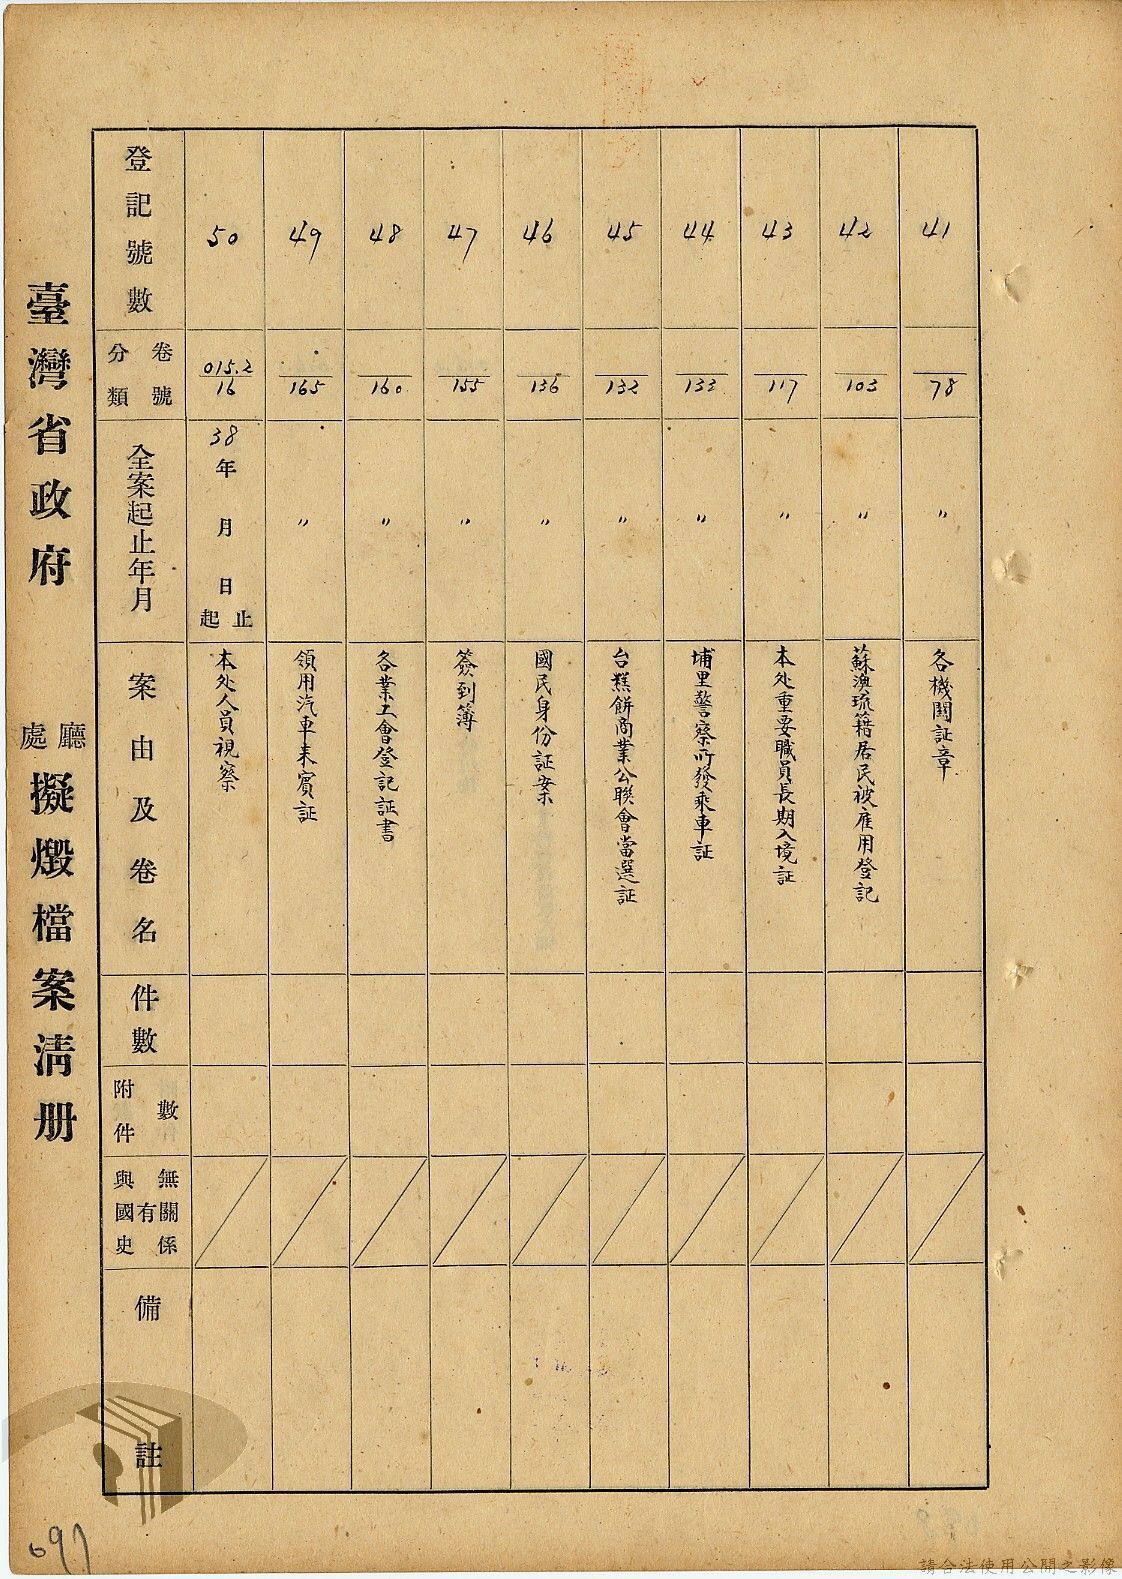 臺灣省政府 廳處 擬燬檔案清册
登記號數
卷號
分類
全案起止年月
案由及卷名
件數
附件數
與國史有無關係
備註
41
78
〃
各機関証章
42
103
〃
蘇澳琉籍居民被雇用登記
43
117
〃
本处重要職員長期入境証
44
133
〃
埔里警察所發乘車証
45
132
〃
台糕餅商業公聯會當選証
46
136
〃
國民身份証案
47
155
〃
簽到簿
48
160
〃
各業工會登記証書
49
165
〃
領用汽車来賓証
50
015.2
16
38年 月 日起止
本处人員視察
697
請合法使用公開之影像